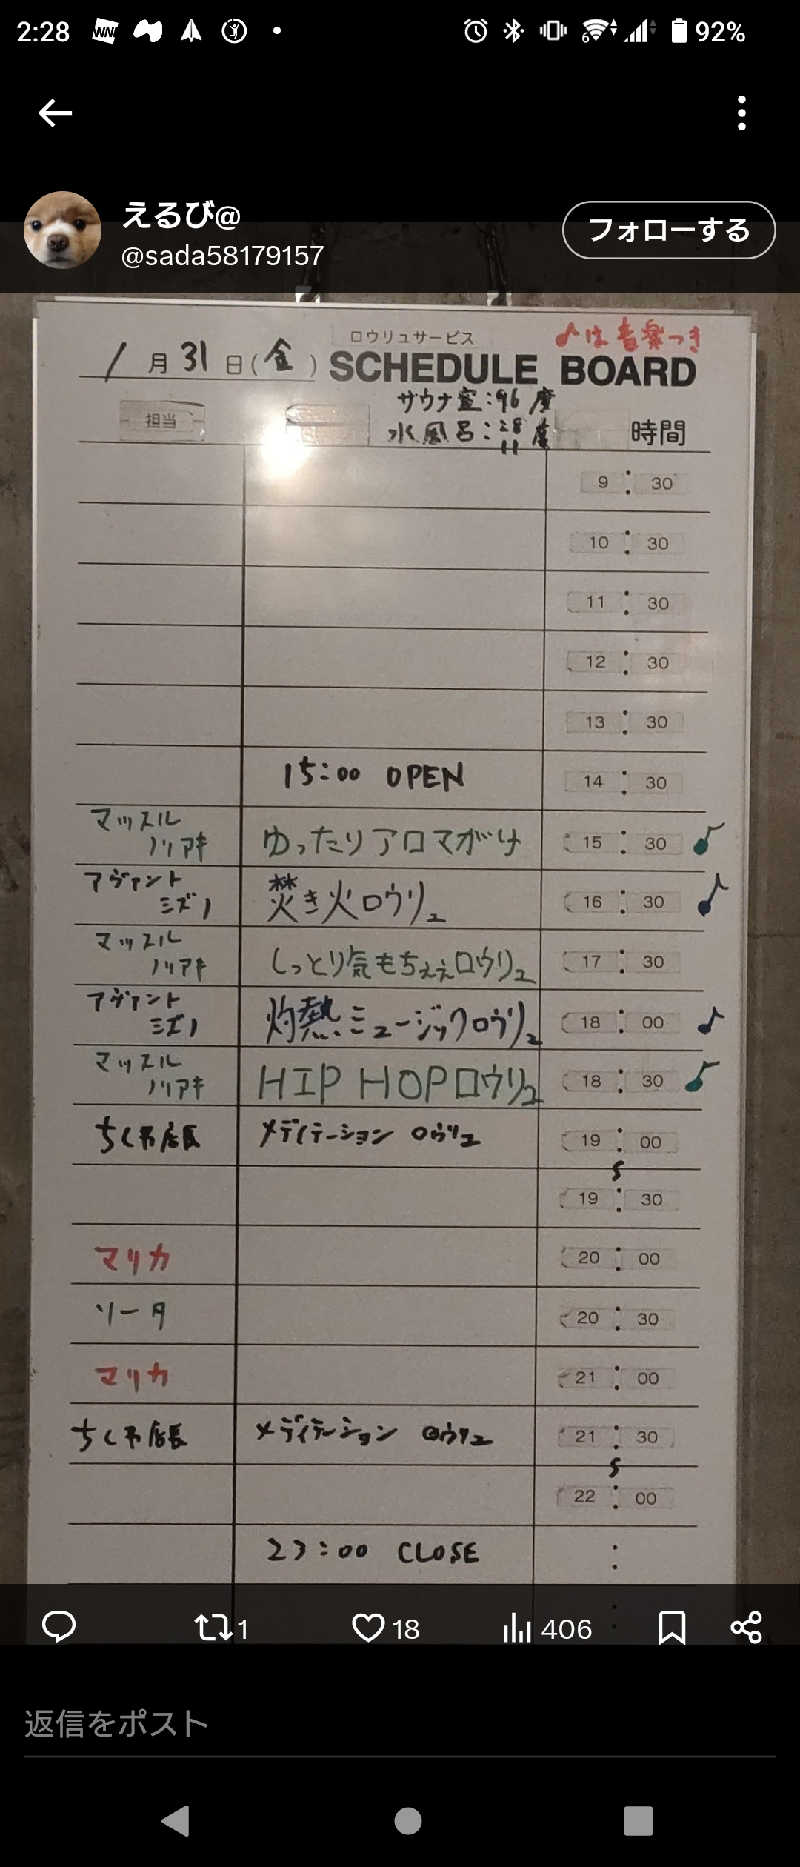 2:28
92%
えるび@
@sada58179157
フォローする
ロウリュサービス
♪は音楽つき
1月31日(金) SCHEDULE BOARD
サウナ室:96度
担当
水風呂:28度
11
時間
9:30
10:30
11:30
12:30
13:30
15:00 OPEN 14:30
マッスル
ノリアキ ゆったりアロマがけ 15:30 ♪
アヴァント
ミズノ 焚き火ロウリュ 16:30 ♪
マッスル
ノリアキ しっとり気もちぇぇロウリュ 17:30
アヴァント
ミズノ 灼熱ミュージックロウリュ 18:00 ♪
マッスル
ノリアキ HIP HOPロウリュ 18:30 ♪
店長 メディテーション ロウリュ 19:00
19:30
マリカ 20:00
ソータ 20:30
マリカ 21:00
店長 メディテーション ロウリュ 21:30
22:00
23:00 CLOSE :
1
18
406
返信をポスト